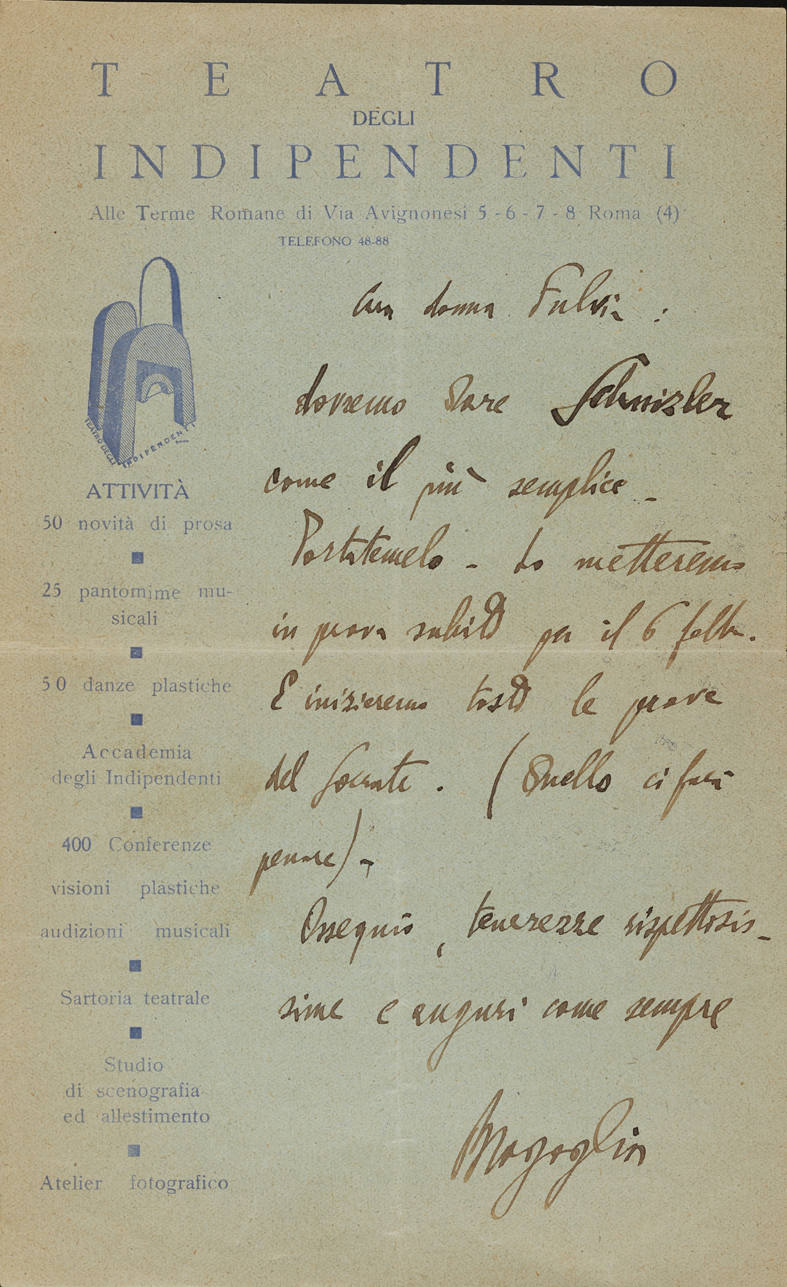 TEATRO
DEGLI
INDIPENDENTI
Alle Terme Romane di Via Avignonesi 5 - 6 - 7 - 8 Roma (4)
TELEFONO 48-88
TEATRO DEGLI INDIPENDENTI
ATTIVITÀ
50 novità di prosa
25 pantomime mu-
sicali
50 danze plastiche
Accademia
degli Indipendenti
400 Conferenze
visioni plastiche
audizioni musicali
Sartoria teatrale
Studio
di scenografia
ed allestimento
Atelier fotografico
Cara donna Fulvia :
dovremo dare Schnizler
come il più semplice -
Portatemelo - Lo metteremo
in prova subito per il 6 febb.
E inizieremo tosto le prove
del Socrate . (Quello ci farà
penare) -
Ossequio, tenerezze rispettosis-
sime e auguri come sempre